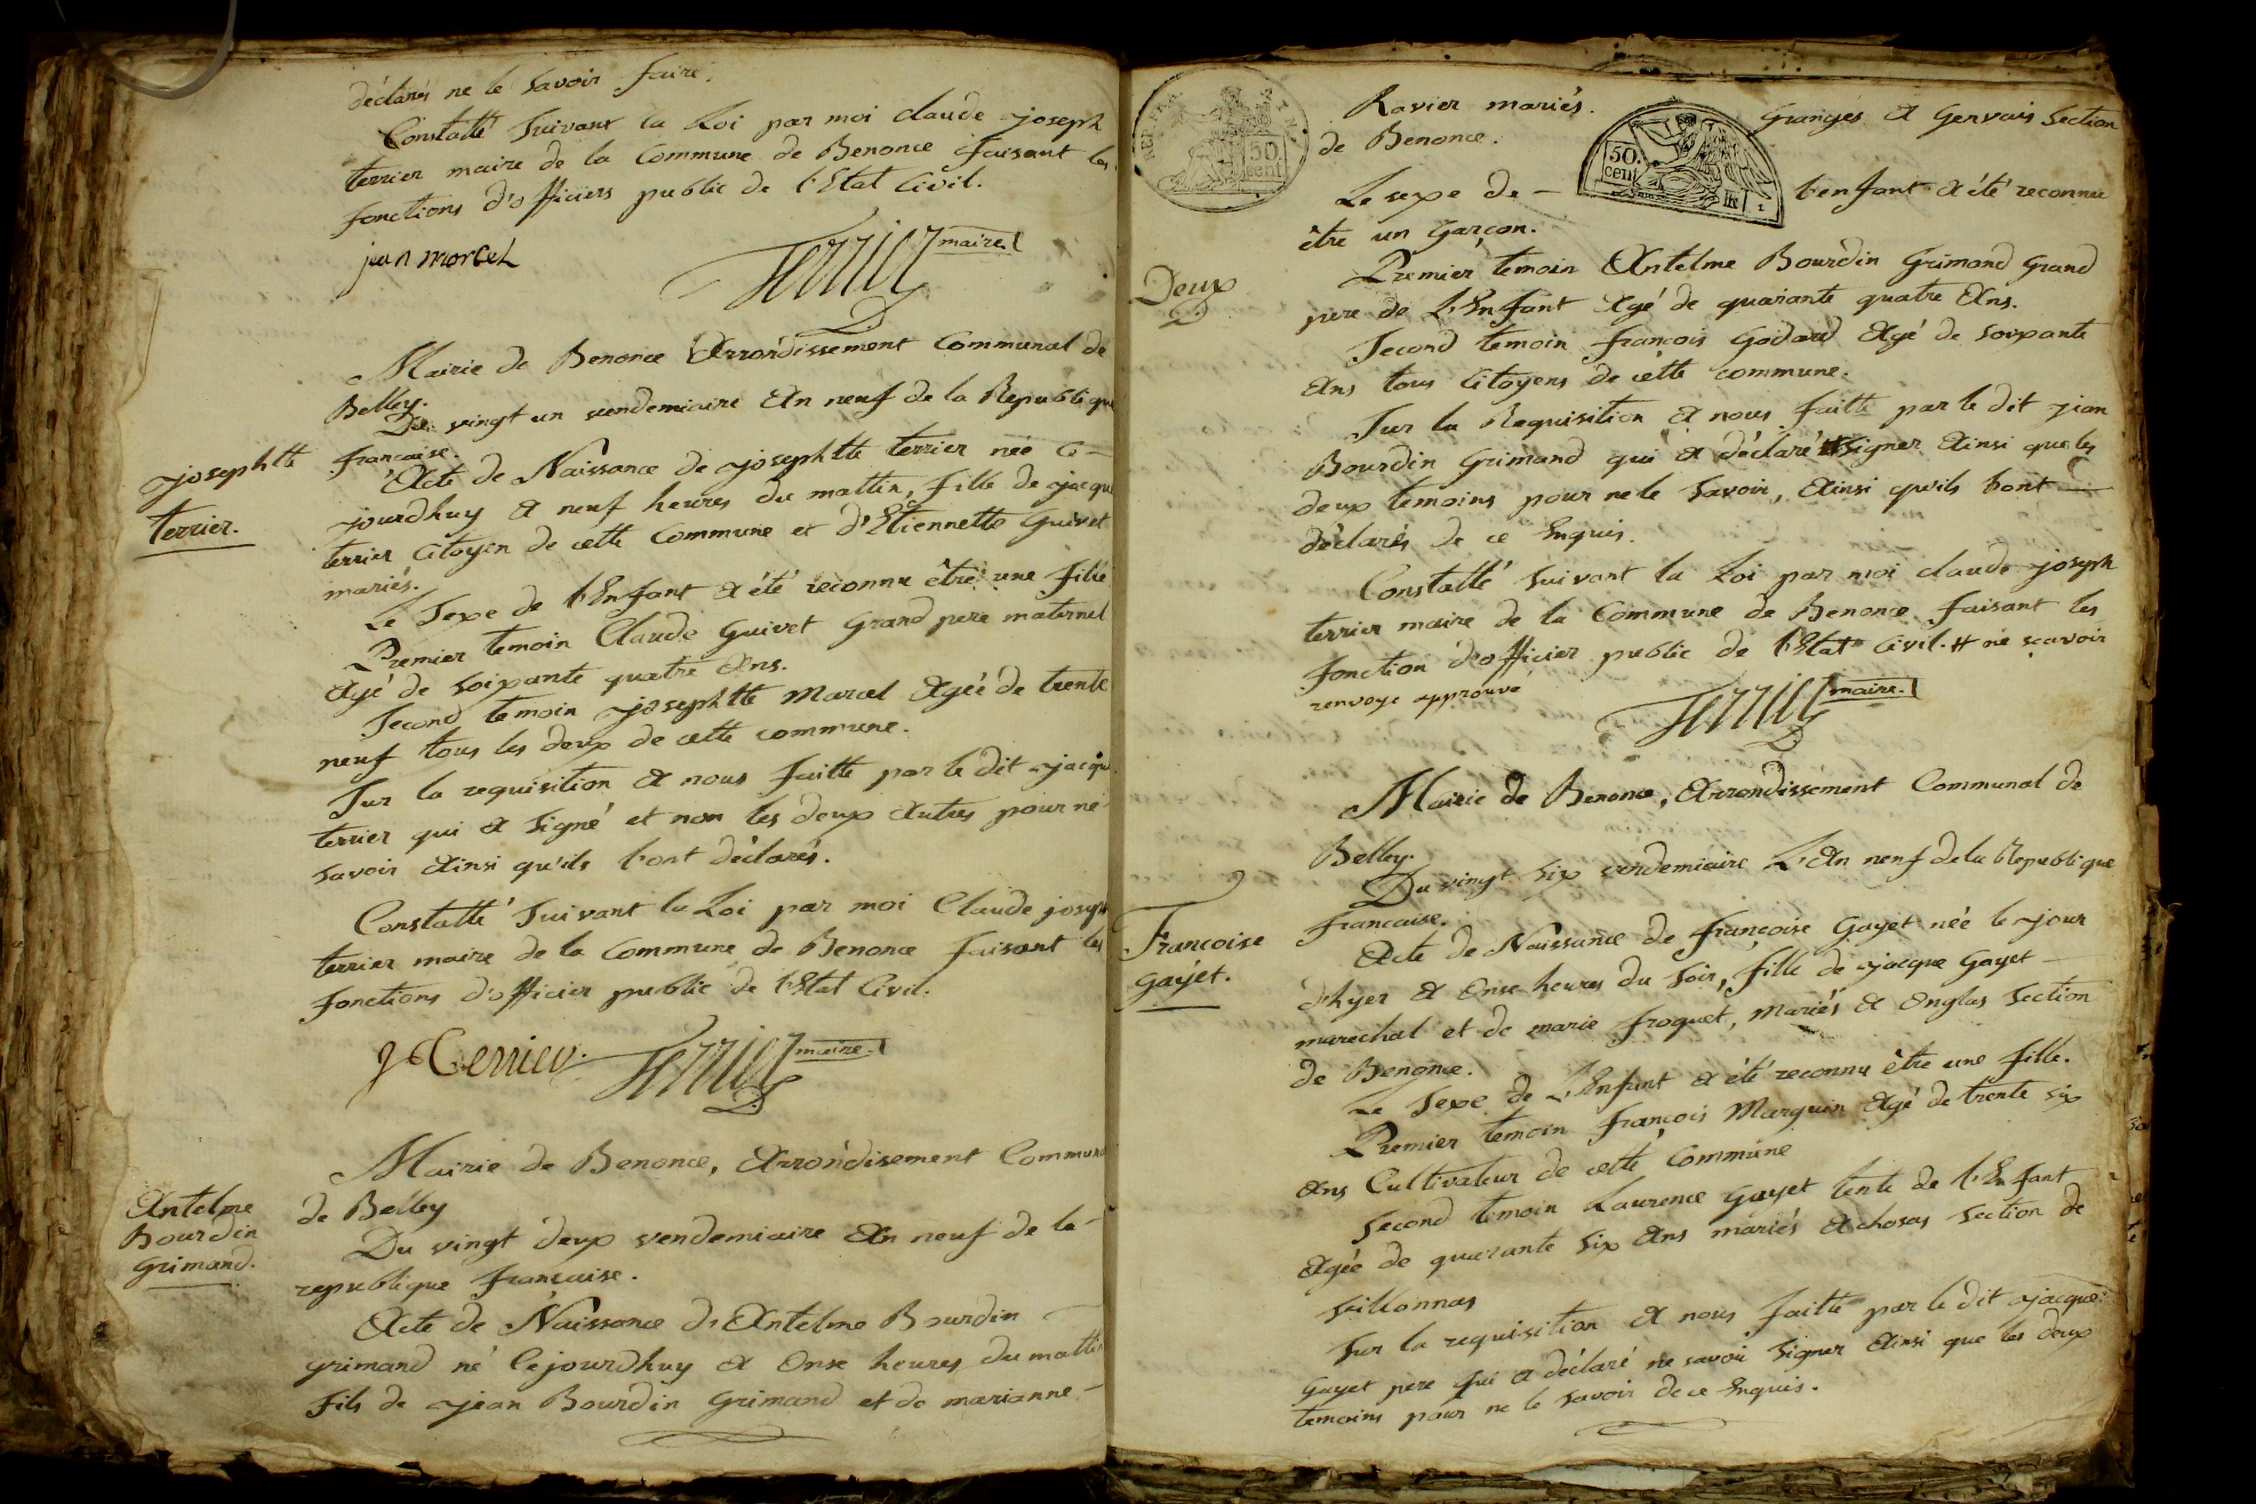 déclarés ne le Savoir faire.
Constatté Suivant la Loi par moi claude joseph
terrier maire de la Commune de Benonce faisant les
fonctions d'officiers public de l'Etat Civil.
jean morcel
Terrier maire.
Mairie de Benonce Arrondissement Communal de
Belley.
Du vingt un vendemiaire An neuf de la Republique
francaise.
josephtte
terrier.
Acte de Naissance de josephtte terrier née ce
jourdhuy a neuf heures du mattin, fille de jacque
terrier Citoyen de cette Commune et d'Etiennette Guivet
mariés.
Le Sexe de l'Enfant a été reconnu être une fille
Premier temoin Claude Guivet Grand pere maternel
Agé de soixante quatre Ans.
Second temoin josephtte Marcel Agée de trente
neuf tous les deux de cette commune.
Sur la requisition a nous faitte par le dit jacque
terrier qui a Signé et non les deux Autres pour ne
savoir Ainsi qu'ils l'ont déclarés.
Constatté Suivant la Loi par moi Claude joseph
terrier maire de la Commune de Benonce faisant les
fonctions d'officier public de l'Etat Civil.
J Terrier. Terrier maire.
Mairie de Benonce, Arrondisement Communal
de Belley
Antelme
Bourdin
Grimand.
Du vingt deux vendemiaire An neuf de la
republique francaise.
Acte de Naissance d'Antelme Bourdin
grimand né Cejourdhuy a Onse heures du mattin
fils de jean Bourdin Grimand et de marianne
REP. FRA.
50.
cent
Ravier mariés. Granges a Gervais Section
de Benonce.
50.
cent
Le sexe de l'enfant a été reconnu
être un Garçon.
Deux
Premier temoin Antelme Bourdin Grimand Grand
pere de L'Enfant Agé de quarante quatre Ans.
Second temoin françois Godard Agé de Soixante
Ans tous Citoyens de cette commune.
Sur la Requisition a nous faitte par le dit jean
Bourdin Grimand qui a déclaré # Signer Ainsi que les
deux temoins pour ne le Savoir, Ainsi qu'ils l'ont
déclarés de ce Enquis.
Constatté Suivant la Loi par moi claude joseph
terrier maire de la Commune de Benonce faisant les
fonction d'officier public de l'Etat Civil. # ne scavoir
renvoye approuvé
Terrier maire.
Mairie de Benonce, Arrondissement Communal de
Belley.
Du vingt Six vendemiaire L'An neuf de la Republique
francaise.
Francoise
gayet.
Acte de Naissance de françoise Gayet née le jour
d'hyer a Onse heures du Soir, fille de jacque Gayet
marechal et de marie froquet, mariés a Onglas Section
de Benonce.
Le Sexe de L'Enfant a été reconnu être une fille.
Premier temoin françois Marquin Agé de trente six
Ans Cultivateur de cette Commune
Second temoin Laurence Gayet tente de l'Enfant
Agée de quarante Six Ans mariés a chosas Section de
Seillonnas
Sur la requisition a nous faitte par le dit jacque
Gayet pere qui a déclaré ne savoir Signer Ainsi que les deux
temoins pour ne le Savoir de ce Enquis.